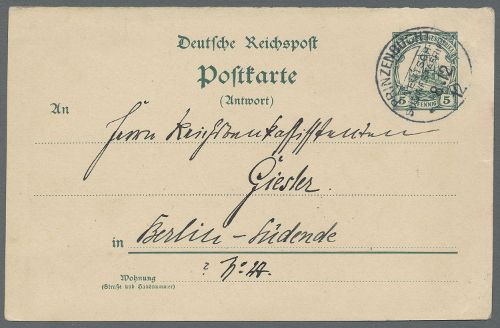 Deutsche Reichspost
Postkarte
(Antwort)
5 PFENNIG 5
PRINZENBUCHT
8/12
12.
An
Herrn Reichsbankassistenten
Giesler.
in Berlin-Südende
Wohnung
(Straße und Hausnummer)